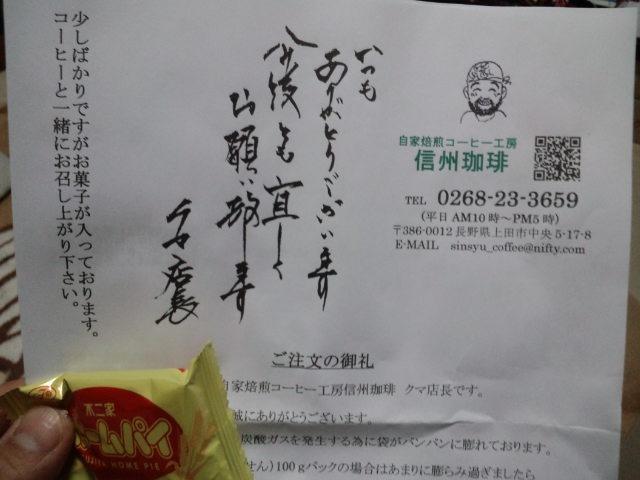 少しばかりですがお菓子が入っております。
コーヒーと一緒にお召し上がり下さい。
いつも
ありがとうございます
今後とも宜しく
お願い致します
クマ店長
自家焙煎コーヒー工房
信州珈琲
TEL 0268-23-3659
(平日 AM10時～PM5時)
〒386-0012 長野県上田市中央5-17-8
E-MAIL sinsyu_coffee@nifty.com
ご注文の御礼
自家焙煎コーヒー工房信州珈琲 クマ店長です。
誠にありがとうございます。
炭酸ガスを発生する為に袋がパンパンに膨れております。
せん)100gパックの場合はあまりに膨らみ過ぎましたら
不二家
ホームパイ
FUJIYA HOME PIE